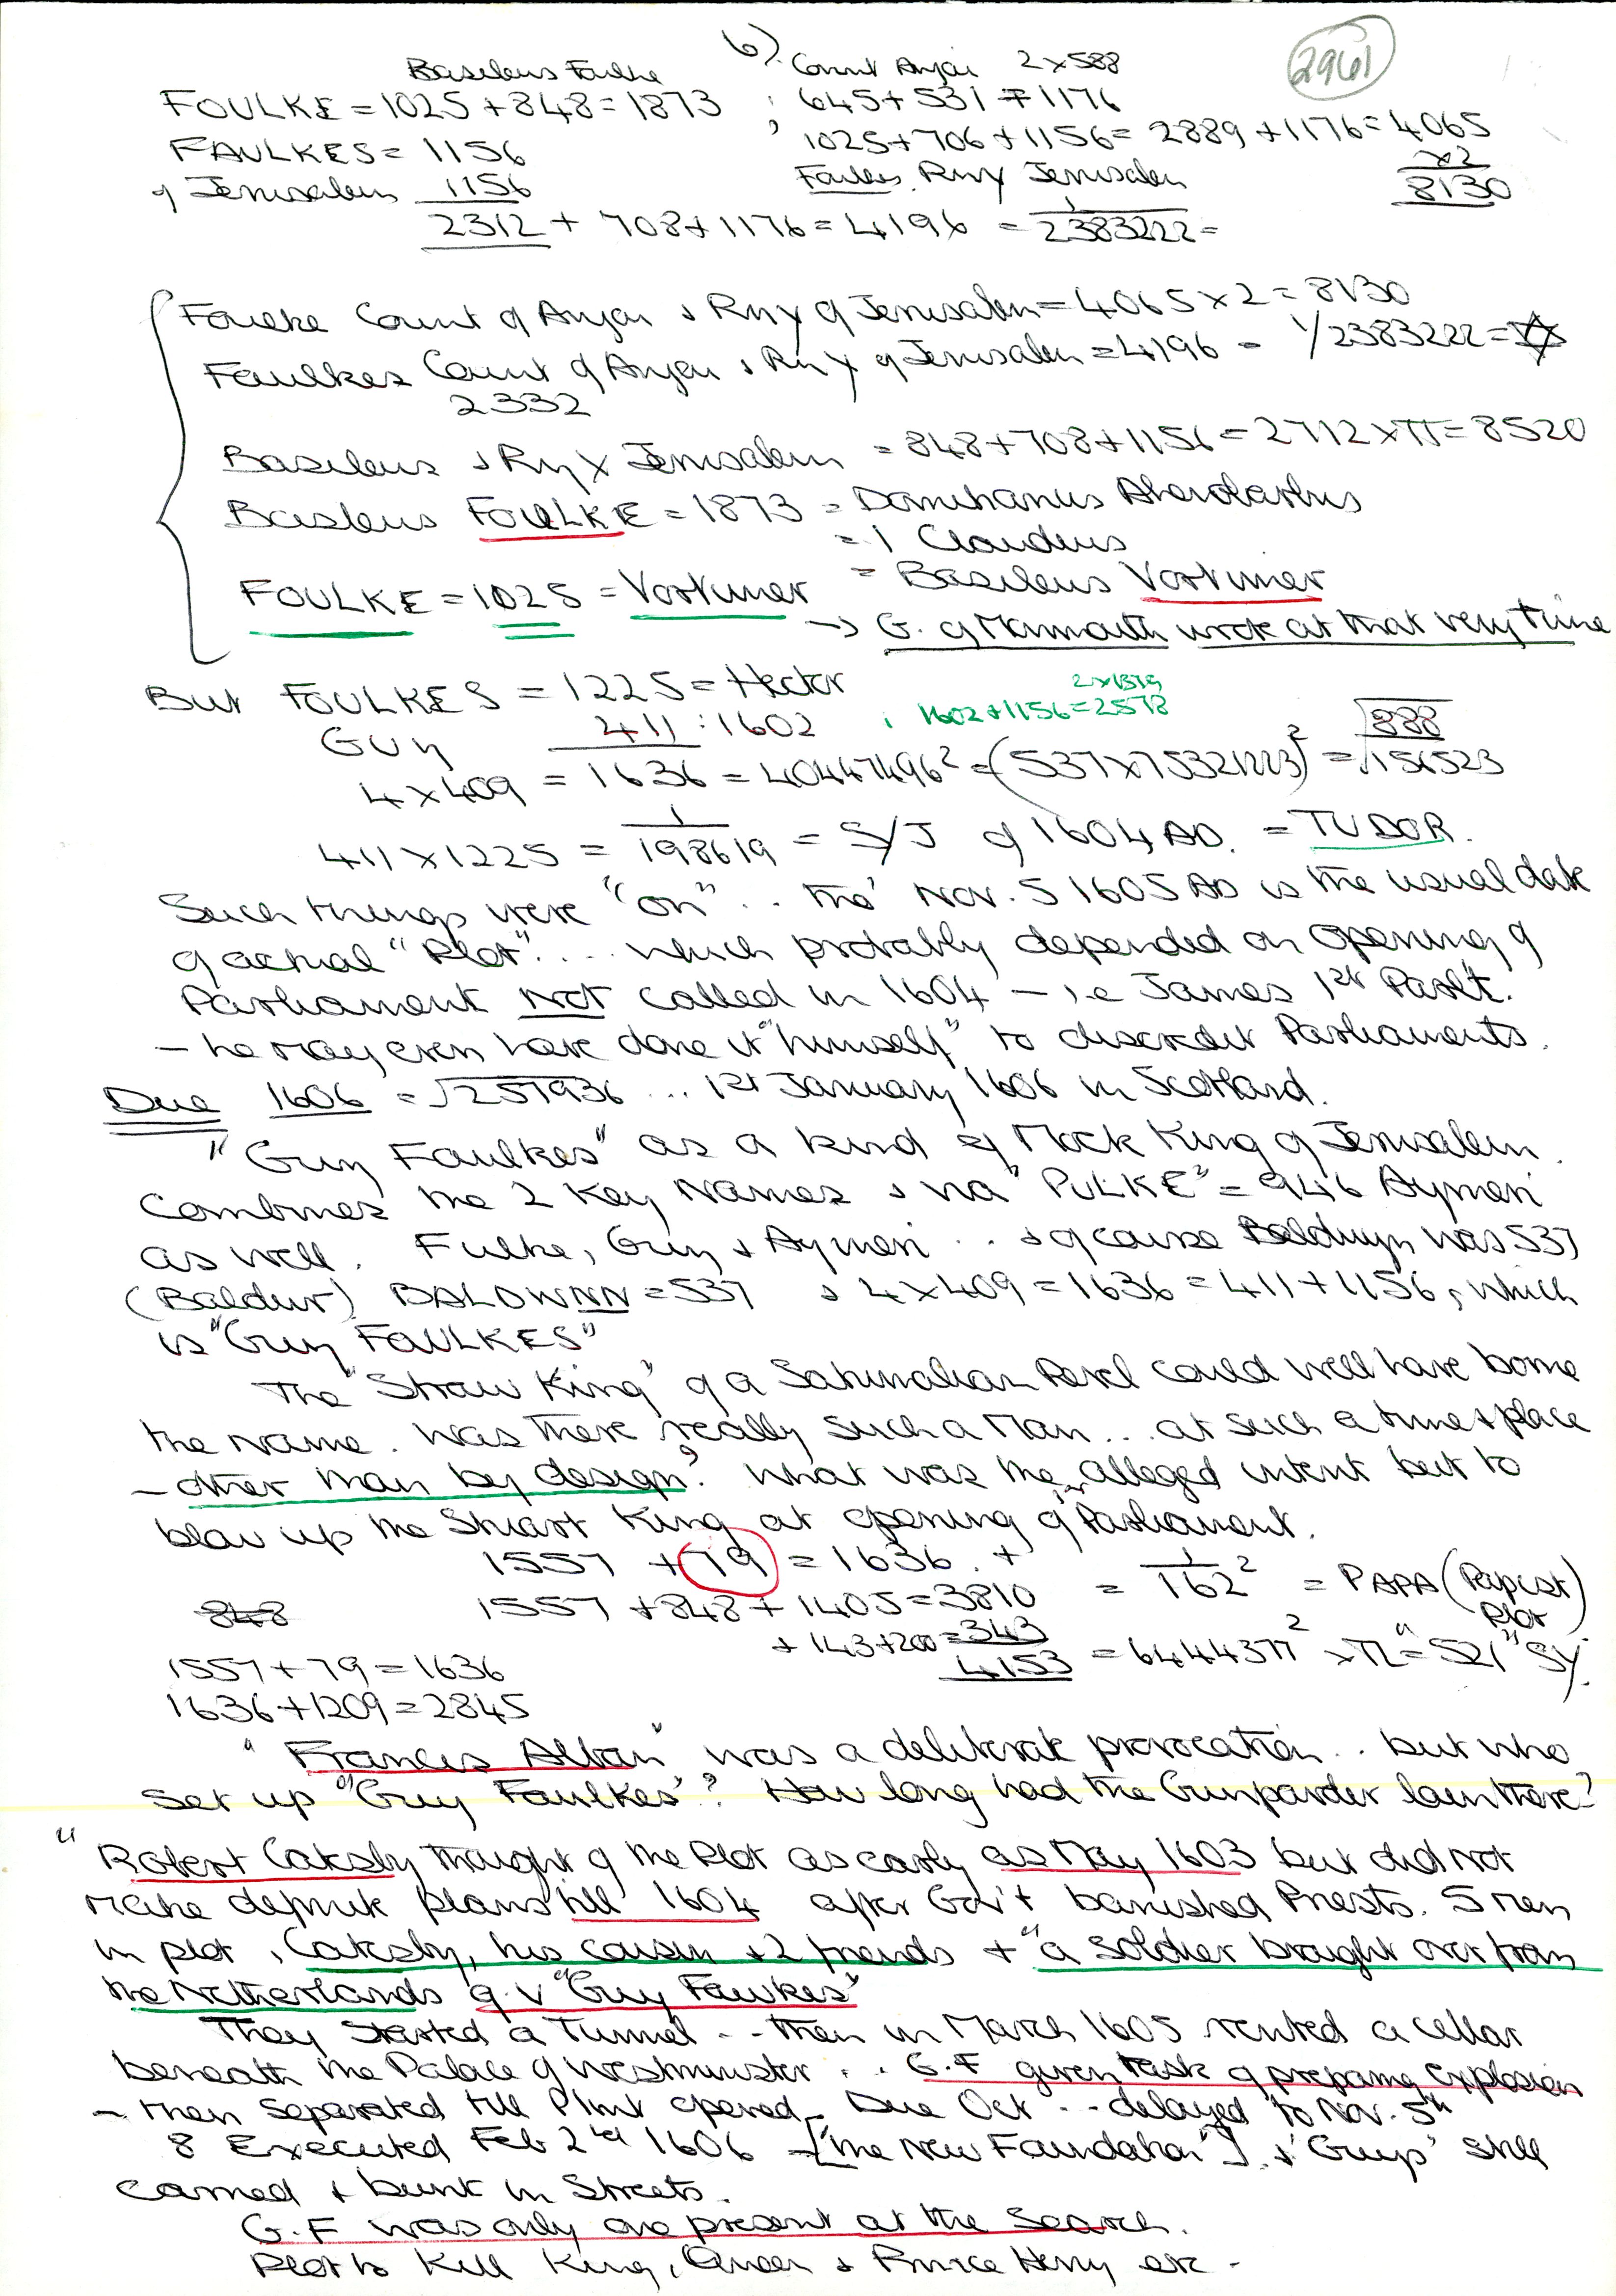 6).
2961
Basileus Foulke
Count Anjou 2x588
FOULKE = 1025 + 848 = 1873 ; 645 + 531 = 1176
FAULKES = 1156 1025 + 706 + 1156 = 2889 + 1176 = 4065
of Jerusalem 1156 Faulkes Rny Jerusalem x2
8130
2312 + 708 + 1176 = 4196 = 1/2383222 =
Foulke Count of Anjou & Rny of Jerusalem = 4065 x 2 = 8130
Faulkes Count of Anjou & Rny of Jerusalem = 4196 = 1/2383222 =
2332
Basileus & Rny Jerusalem = 848 + 708 + 1156 = 2712 x π = 8520
Basileus FOULKE = 1873 = Domitianus
= 1 Claudius
FOULKE = 1025 = Vortimer = Basileus Vortimer
→ G. of Monmouth wrote at that very time
But FOULKES = 1225 = Hector
GUY 411 : 1602 ; 1602 + 1156 = 2578
2x1379
4 x 409 = 1636 = 40447496² = (537 x 75321223)² = √156523
888
411 x 1225 = 1/198619 = S/J of 1604 AD. = TUDOR.
Such things were "on" .. tho' Nov. 5 1605 AD is the usual date
of actual "Plot" .... which probably depended on opening of
Parliament NOT called in 1604 – i.e James 1st Parl't.
– he may even have done it "himself" to discredit Parliaments.
Due 1606 = √257936 ... 1st January 1606 in Scotland.
"Guy Faulkes" as a kind of Mock King of Jerusalem.
Combines the 2 Key Names & via "PULKE" = 946 Aymeri
as well. Fulke, Guy & Aymeri .. & of course Baldwyn was 537
(Baldur) BALDWNN = 537 & 4 x 409 = 1636 = 411 + 1156, which
is "Guy FAULKES"
The "Straw King" of a Saturnalian Revel could well have borne
the name. Was there really such a Man ... at such a time & place
– other than by design? What was the alleged intent but to
blow up the Stuart King at opening of Parliament.
1557 + 79 = 1636. +
848 1557 + 848 + 1405 = 3810 = 1/162² = PAPA (Papist Plot)
+ 143 + 200 = 343
1557 + 79 = 1636 4153 = 644437² x π "= 521" SY.
1636 + 1209 = 2845
"Francis Alban" was a deliberate provocation .. but who
set up "Guy Faulkes"? How long had the Gunpowder lain there?
"Robert Catesby thought of the Plot as early as May 1603 but did not
make definite plans till 1604 after Gov't banished Priests. 5 men
in plot, Catesby, his cousin & 2 friends + "a soldier brought over from
the Netherlands q.v "Guy Fawkes"
They started a Tunnel - - then in March 1605 rented a cellar
beneath the Palace of Westminster .. G.F given task of preparing explosion
– then separated till Plmt opened – Due Oct - - delayed to Nov. 5th
8 Executed Feb 1606 – [the New Foundation"]. & 'Guys' still
carried & burnt in Streets.
G.F was only one present at the Search.
Plot to Kill King, Queen & Prince Henry etc -